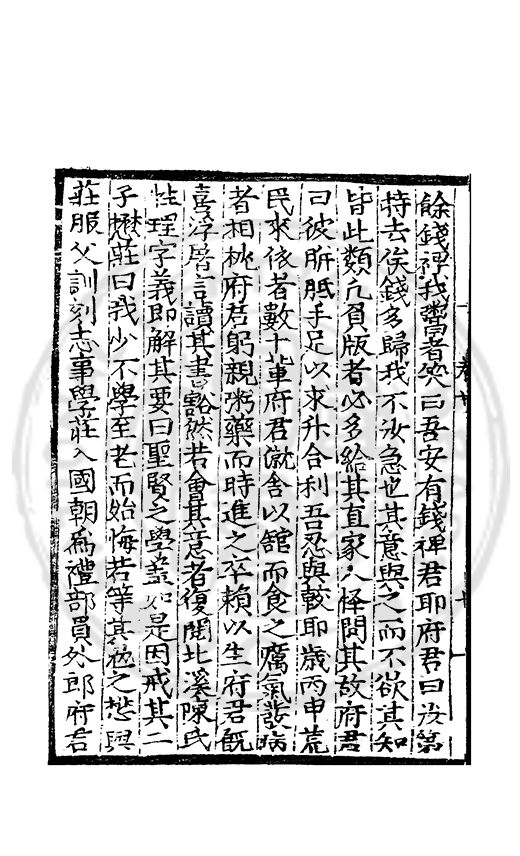 餘錢裨我鬻者笑曰吾安有錢裨君耶府君曰汝第
持去俟錢多歸我不汝急也其意與之而不欲其知
皆此類凡負版者必多給其直家人怪問其故府君
曰彼胼胝手足以求升合利吾忍與較耶歲丙申荒
民來依者數十輩府君僦舍以舘而食之癘氣發病
者相枕府君躬親粥藥而時進之卒賴以生府君旣
喜浮屠言讀其書豁然若會其意者復閱北溪陳氏
性理字義即解其要曰聖賢之學蓋如是因戒其二
子懋莊曰我少不學至老而始悔若等其勉之懋與
莊服父訓刻志事學莊入國朝爲禮部員外郎府君